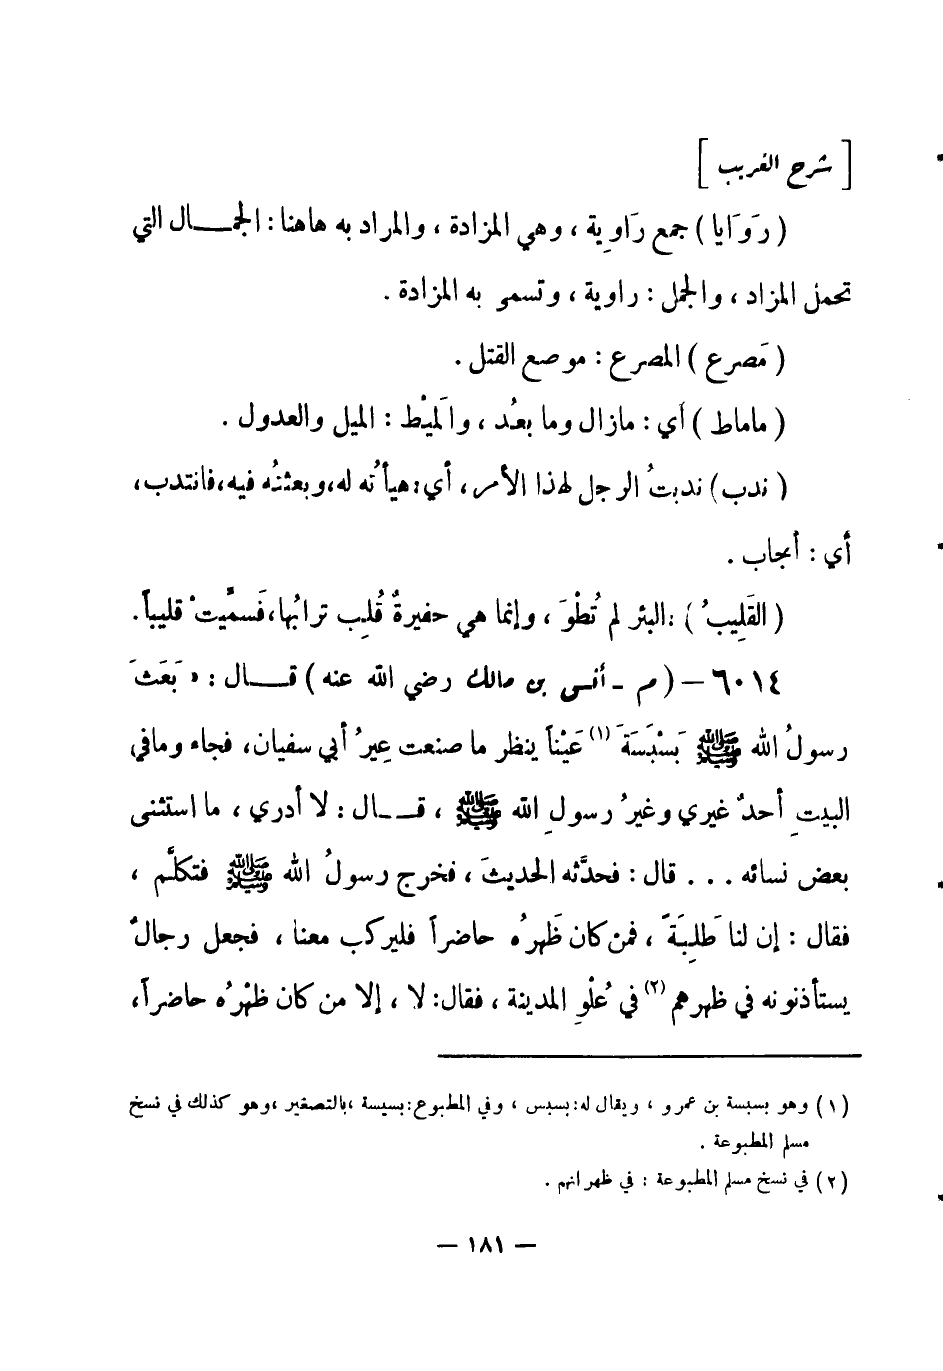 [ شرح الغريب ]
( رَوَايا ) جمع رَاوِية ، وهي المزادة ، والمراد به هاهنا : الجمـــال التي
تحمل المزاد ، والجمل : راوية ، وتسمى به المزادة .
( مَصرع ) المصرع : موضع القتل .
( ماماط ) أي : مازال وما بعُد ، والَميْط : الميل والعدول .
( ندب ) ندبتُ الرجل لهذا الأمر ، أي : هيأتُه له ، وبعثتُه فيه ، فانتدب ،
أي : أجاب .
( القَلِيبُ ) : البئر لم تُطْوَ ، وإنما هي حفيرةٌ قُلِب ترابُها ، فَسمِّيتْ قليباً .
٦٠١٤ – ( م - أنس بن مالك رضي الله عنه ) قـــال : « بَعَثَ
رسولُ الله ﷺ بَسْبَسَةَ (١) عَيْناً ينظر ما صنعت عِيرُ أبي سفيان ، فجاء وما في
البيتِ أحدٌ غيري وغيرُ رسولِ الله ﷺ ، قـــال : لا أدري ، ما استثنى
بعض نسائه . . . قال : فحدَّثه الحديثَ ، فخرج رسولُ الله ﷺ فتكلَّم ،
فقال : إن لنا طَلِبَةً ، فمن كان ظَهرُه حاضراً فليركب معنا ، فجعل رجالٌ
يستأذنونه في ظهرهم (٢) في عُلْوِ المدينة ، فقال : لا ، إلا من كان ظهْرُه حاضراً ،
(١) وهو بسبسة بن عمرو ، ويقال له : بسبس ، وفي المطبوع : بسيسة ، بالتصغير ، وهو كذلك في نسخ
مسلم المطبوعة .
(٢) في نسخ مسلم المطبوعة : في ظهرانهم .
– ١٨١ –